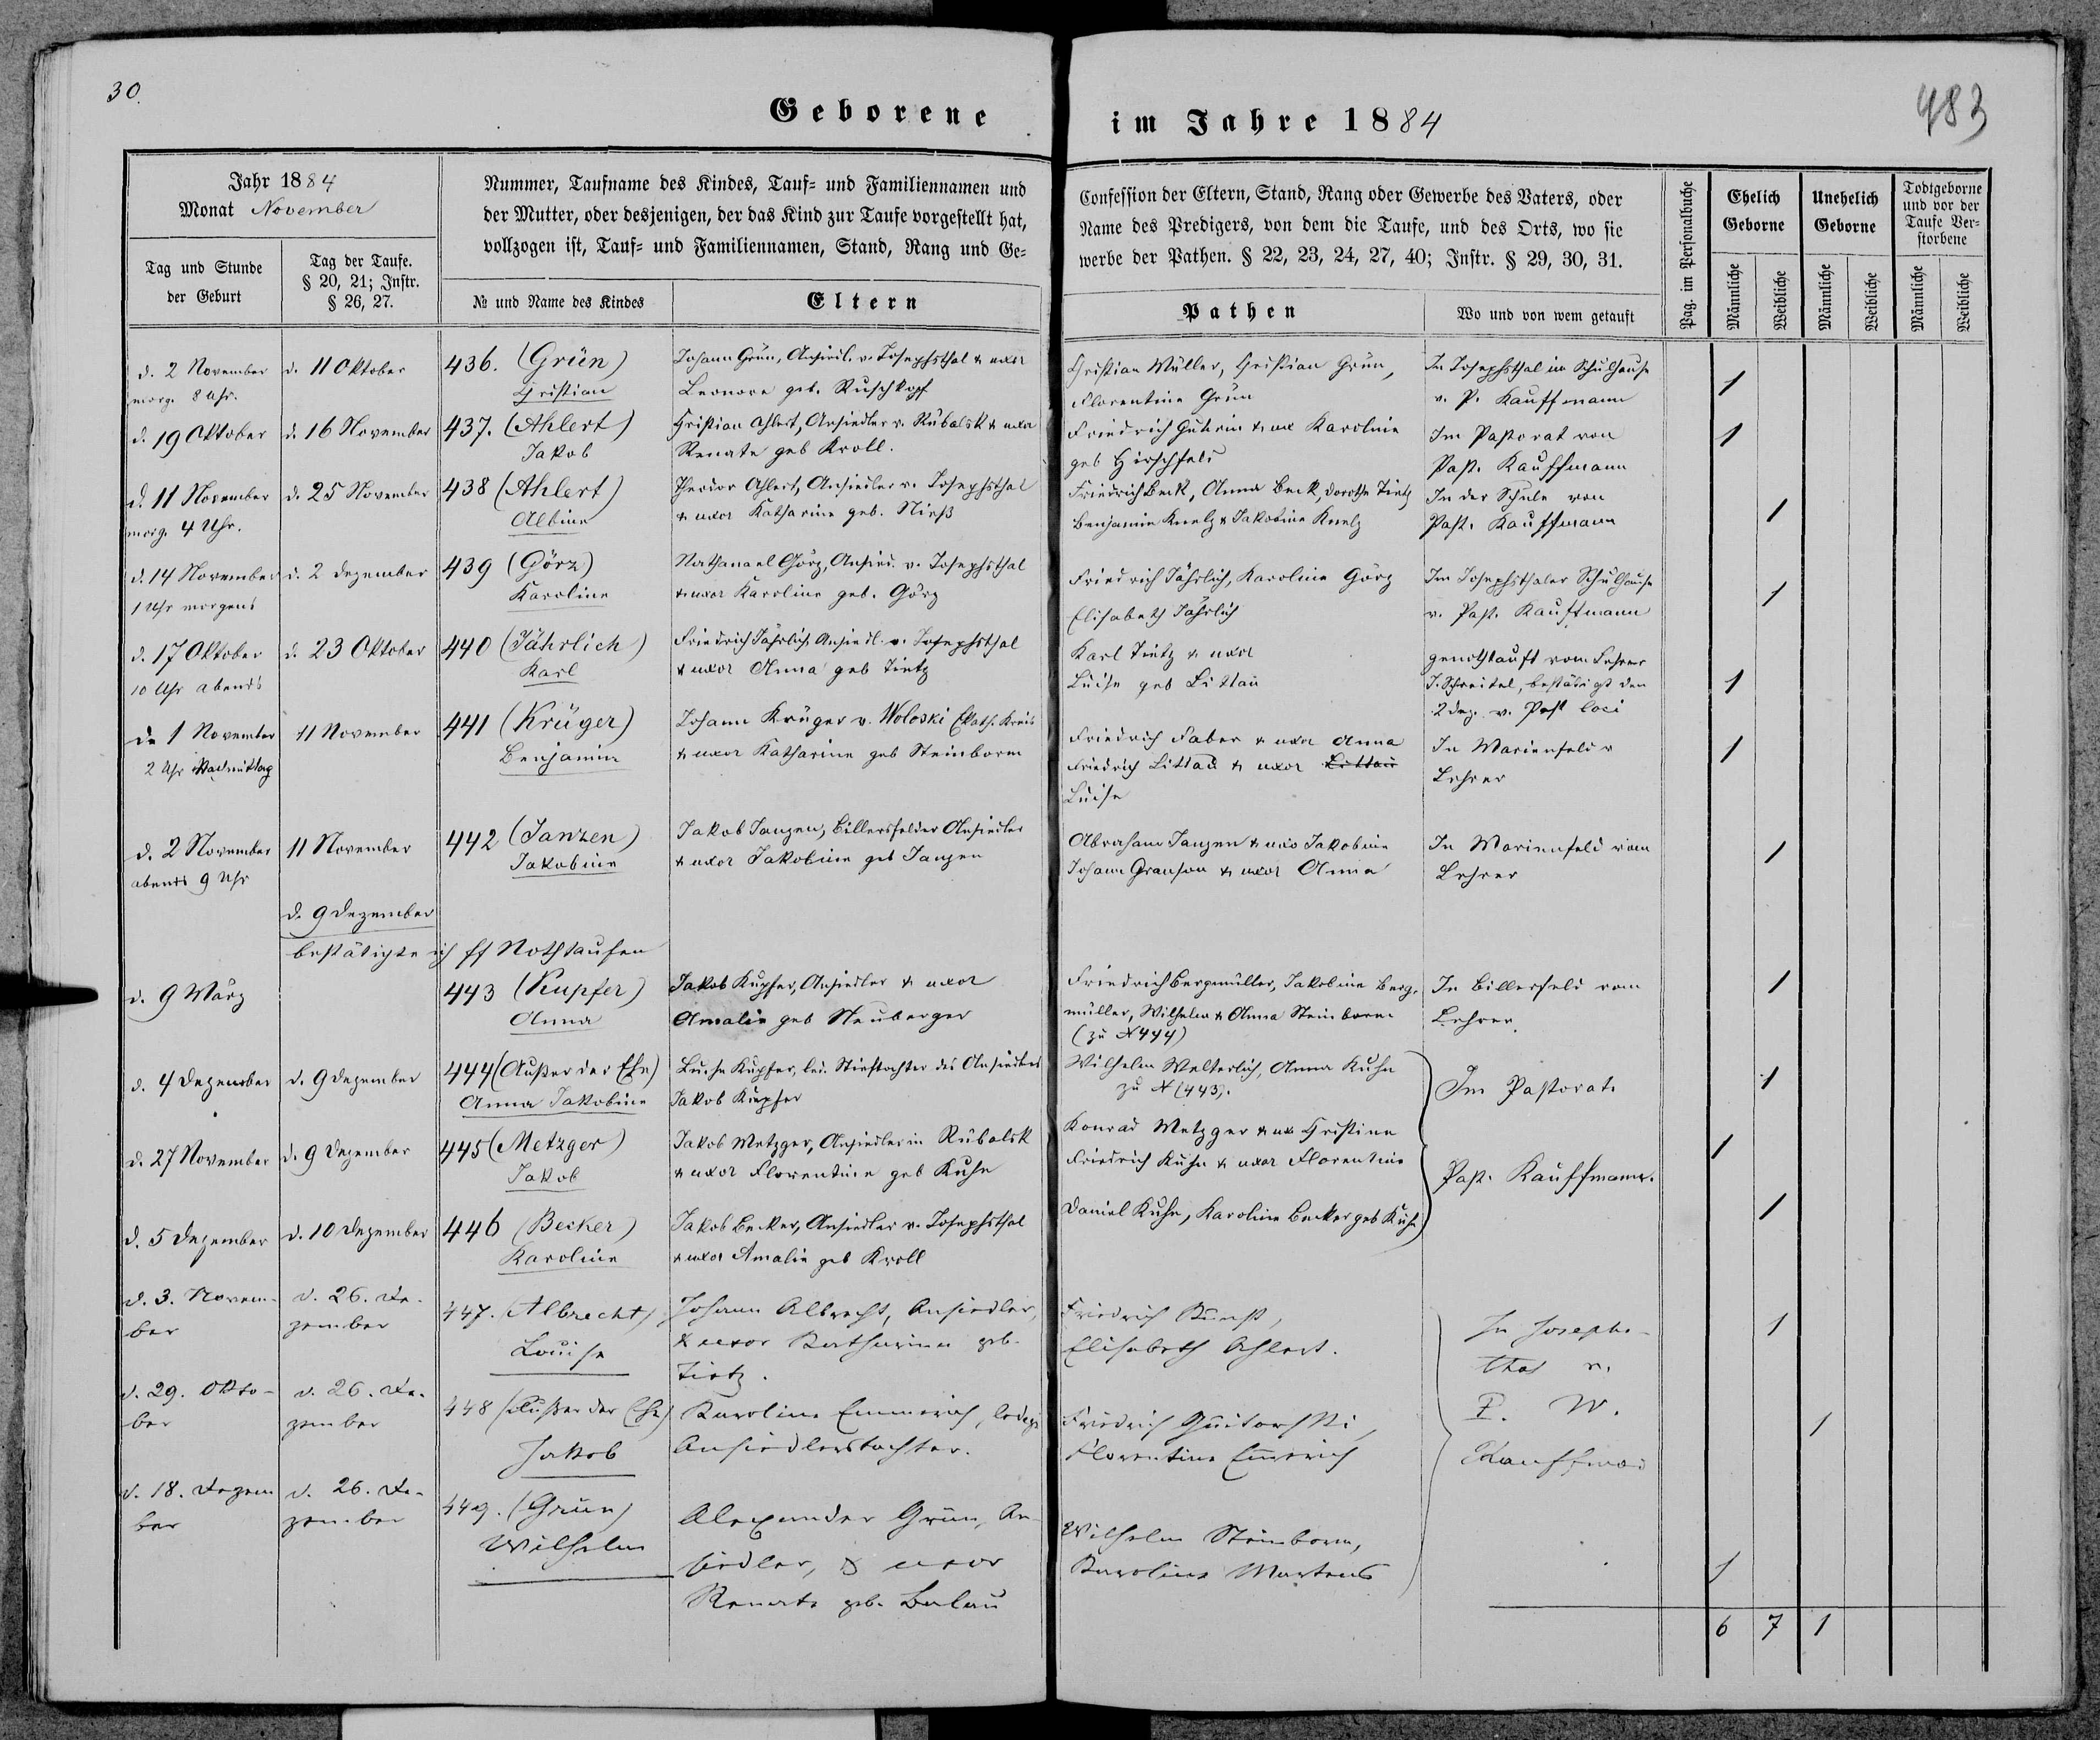 30.
483
Geborene
im Jahre 1884
Jahr 1884
Monat November
Tag und Stunde
der Geburt
Tag der Taufe.
§ 20, 21; Instr.
§ 26, 27.
Nummer, Taufname des Kindes, Tauf- und Familiennamen und
der Mutter, oder desjenigen, der das Kind zur Taufe vorgestellt hat,
vollzogen ist, Tauf- und Familiennamen, Stand, Rang und Ge-
№ und Name des Kindes
Eltern
Confession der Eltern, Stand, Rang oder Gewerbe des Vaters, oder
Name des Predigers, von dem die Taufe, und des Orts, wo sie
werbe der Pathen. § 22, 23, 24, 27, 40; Instr. § 29, 30, 31.
Pathen
Wo und von wem getauft
Pag. im Personalbuche
Ehelich
Geborne
Unehelich
Geborne
Todtgeborne
und vor der
Taufe Ver-
storbene
Männliche
Weibliche
Männliche
Weibliche
Männliche
Weibliche
d. 2 November
morg. 8 Uhr.
d. 11 Oktober
436. (Grün)
Christian
Johann Grün, Ansiedl. v. Josephsthal & uxor
Leonore geb. Ruschkopf
Christian Müller, Christian Grün,
Florentine Grün
In Josephsthal im Schulhause
v. P. Kauffmann
1
d. 19 Oktober
d. 16 November
437. (Ahlert)
Jakob
Christian Ahlert, Ansiedler v. Rübalsk & uxor
Renate geb Kroll.
Friedrich Guhrin & ux Karoline
geb Hirschfeld
Im Pastorat von
Past. Kauffmann
1
d. 11 November
morg. 4 Uhr.
d. 25 November
438 (Ahlert)
Albine
Theodor Ahlert, Ansiedler v. Josephsthal
& uxor Katharine geb.
Friedrich Beck, Anna Beck, Dorothe Tietz
Benjamin Knelz & Jakobine Knelz
In der Schule von
Past. Kauffmann
1
d. 14 November
1 Uhr morgens
d. 2 Dezember
439 (Görz)
Karoline
Nathanael Görz, Ansied. v. Josephsthal
& uxor Karoline geb. Görz
Friedrich Jährlich, Karoline Görz
Elisabeth Jährlich
Im Josephsthaler Schulhause
v. Past. Kauffmann
1
d. 17 Oktober
10 Uhr abends
d. 23 Oktober
440 (Jährlich)
Karl
Friedrich Jährlich Ansiedl. v. Josephsthal
& uxor Anna geb Tietz
Karl Tietz & uxor
Luise geb Littau
genothtauft vom Lehrer
J. Schreitel, bestätigt den
2 Dez. v. Past loci
1
de 1 November
2 Uhr Nachmittag
11 November
441 (Krüger)
Benjamin
Johann Krüger v. Woloski Ekath. Kreis
& uxor Katharine geb Steinborn
Friedrich Faber & uxor Anna
Friedrich Littau & uxor Littau
Luise
In Marienfeld v
Lehrer
1
d. 2 November
abends 9 Uhr
11 November
442 (Janzen)
Jakobine
Jakob Janzen, Billersfelder Ansiedler
& uxor Jakobine geb Janzen
Abraham Janzen & uxo Jakobine
Johann Granson & uxor Anna
In Marienfeld vom
Lehrer
1
d. 9 Dezember
bestätigte ich ff Nothtaufen
d. 9 März
443 (Kupfer)
Anna
Jakob Kupfer, Ansiedler & uxor
Amalie geb Neuberger
Friedrich Bergmüller, Jakobine Berg.
müller, Wilhelm & Anna Steinborn
(zu N 444)
In Billersfeld vom
Lehrer.
1
d. 4 Dezember
d. 9 Dezember
444 (Außer der Ehe)
Anna Jakobine
Luise Kupfer, led. Stieftochter des Ansiedlers
Jakob Kupfer
Wilhelm Welterlich, Anna Kuhn
zu N (443).
Im Pastorat.
1
d. 27 November
d. 9 Dezember
445 (Metzger)
Jakob
Jakob Metzger, Ansiedler in Rübalsk
& uxor Florentine geb Kuhn
Konrad Metzger & ux Christine
Friedrich Kuhn & uxor Florentine
Past. Kauffmann.
1
d. 5 Dezember
d. 10 Dezember
446 (Becker)
Karoline
Jakob Becker, Ansiedler v. Josephsthal
& uxor Amalie geb Kroll
Daniel Kuhn, Karoline Becker geb Kuhn
1
d. 3. Novem-
ber
d. 26. De-
zember
447. (Albrecht)
Louise
Johann Albrecht, Ansiedler,
& uxor Katharina geb.
Tietz.
Friedrich Kunst,
Elisabeth Ahlert.
In Josephs-
thal v.
P. W.
Kauffman
1
d. 29. Okto-
ber
d. 26. De-
zember
448 (Außer der Ehe)
Jakob
Karoline Emmerich, ledige
Ansiedlerstochter.
Friedrich
Florentine Emerich
1
d. 18. Dezem
ber
d. 26. De-
zember
449. (Grün)
Wilhelm
Alexander Grün, An-
siedler, & uxor
Renate geb. Balau
Wilhelm Steinborn,
Karoline Martens
1
6 7 1